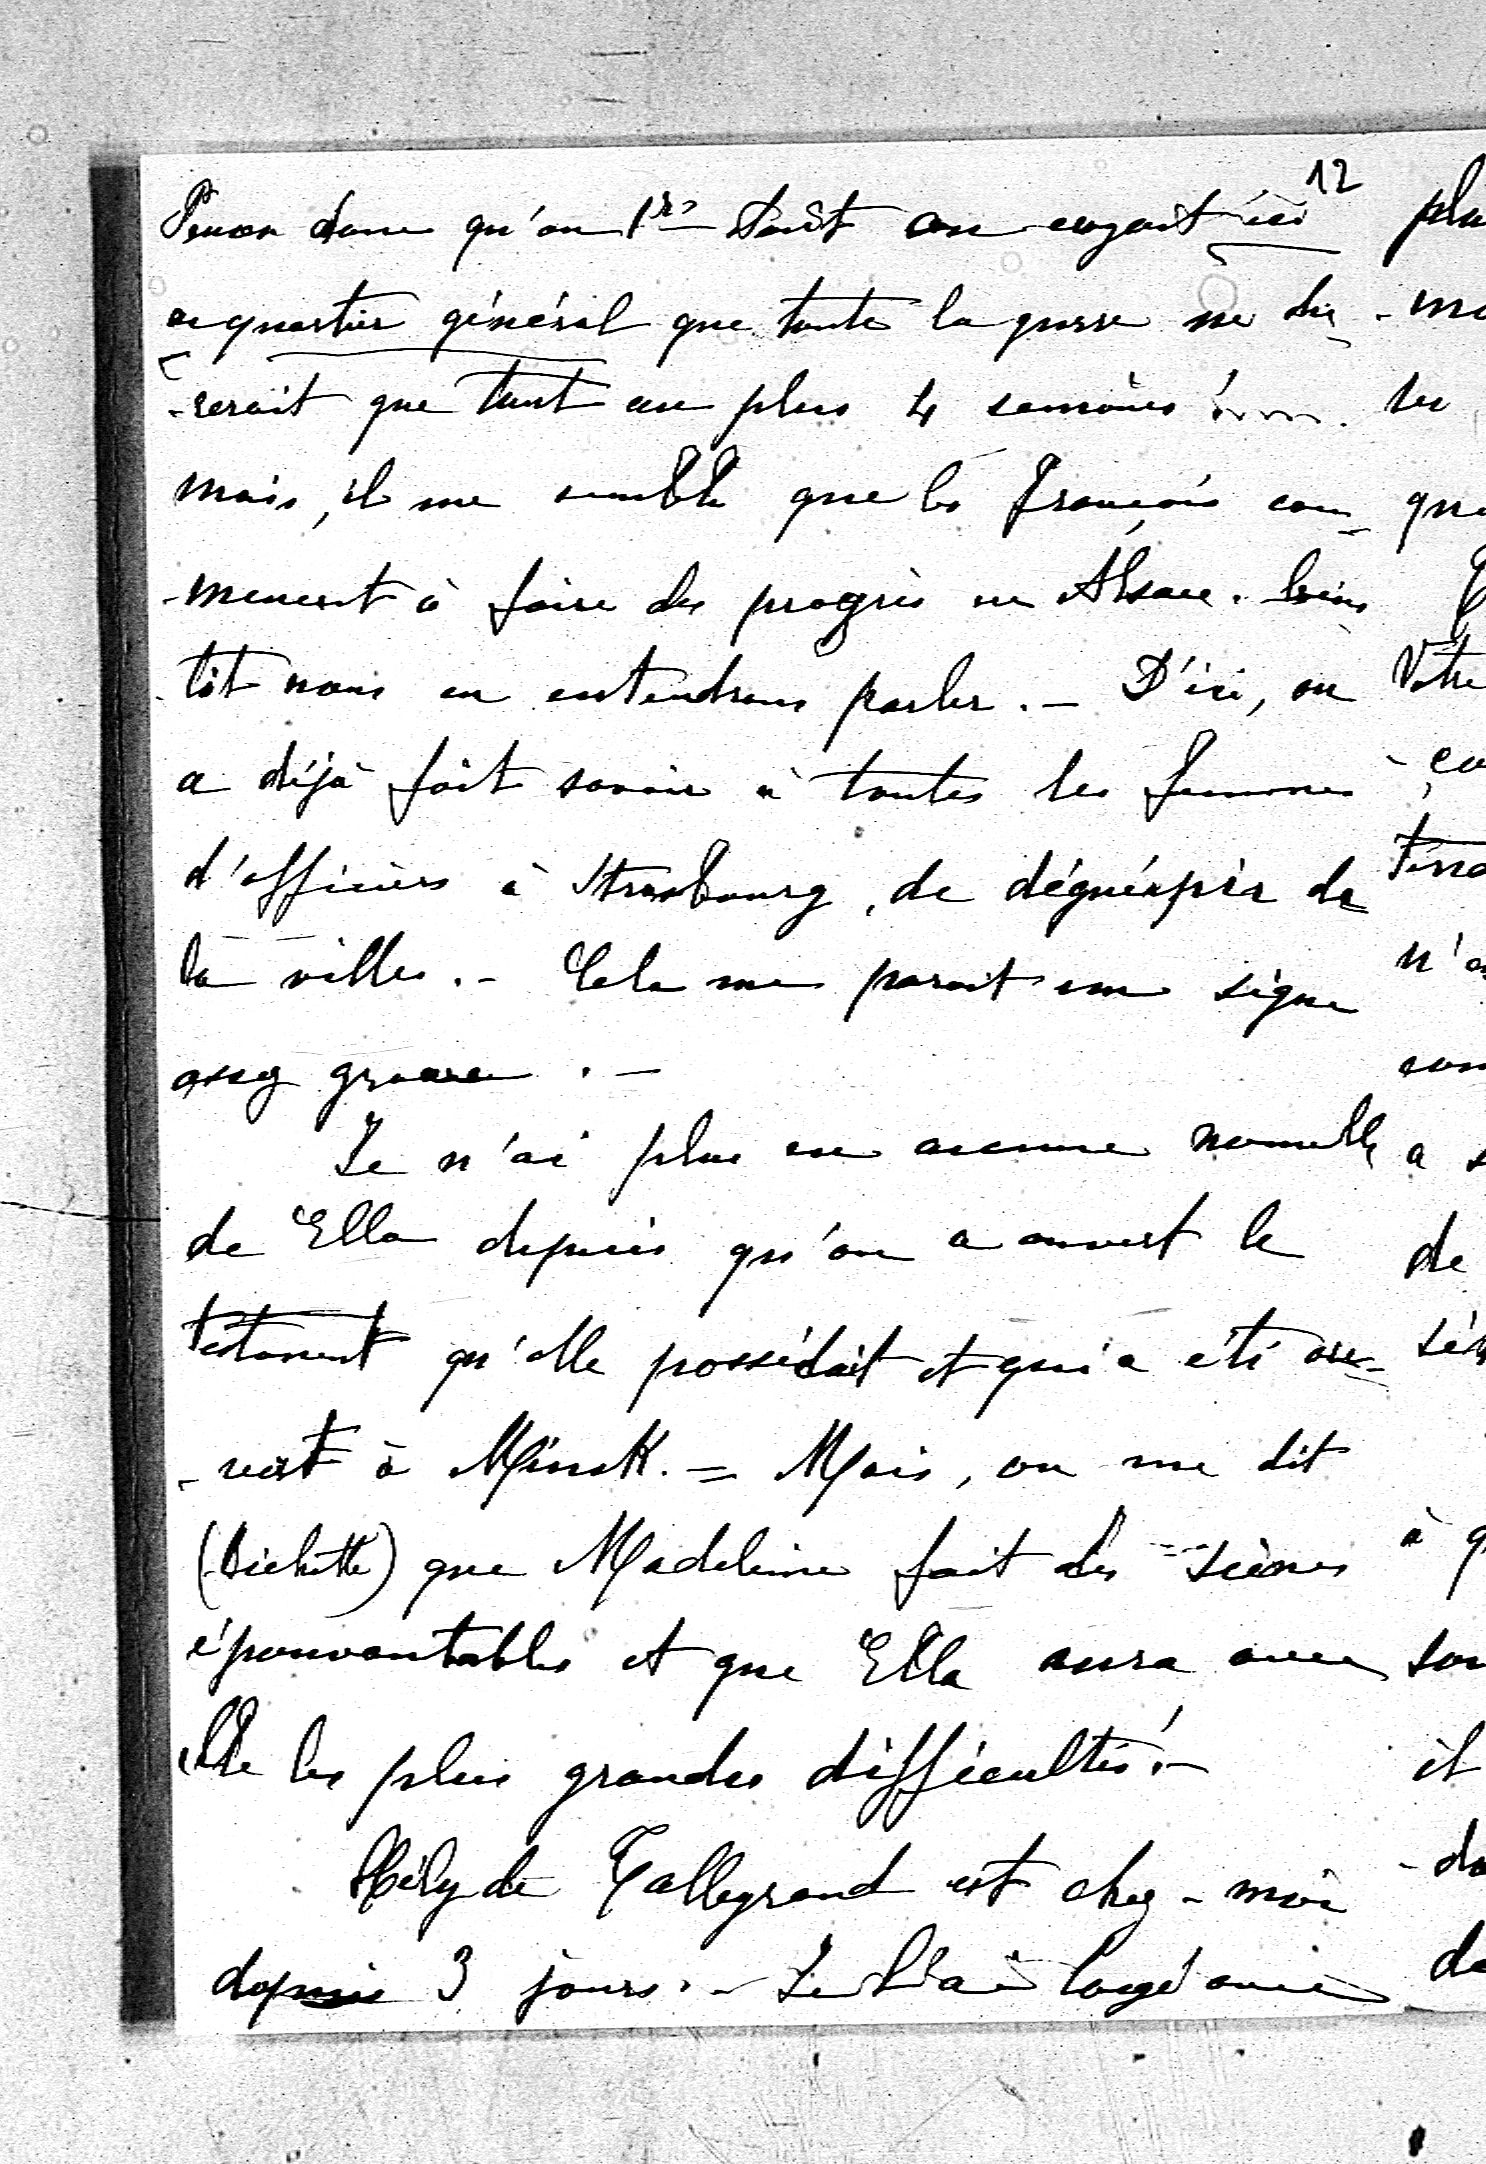 12
Pensez donc qu'au 1er Août on croyait ici
au quartier général que toute la guerre ne du-
-rerait que tout au plus 4 semaines!....
mais, il me semble que les français com-
-mencent à faire des progrès en Alsace. bien
-tôt nous en entendrons parler. - D'ici, on
a déjà fait savoir à toutes les femmes
d'officiers à Strasbourg, de déguérpir de
la villes. - Cela me parait une signe
assez grave. -
Je n'ai plus eu aucune nouvelle
de Ella depuis qu'on a ouvert le
testament qu'elle possédait et qui a été ou-
-vert à Minsk. = Mais, on me dit
(Bichette) que Madeleine fait des scènes
épouvantables et que Ella aura avec
elle les plus grandes difficultés! -
Hély de Talleyrand est chez-moi
depuis 3 jours. - Je l'ai logé avec